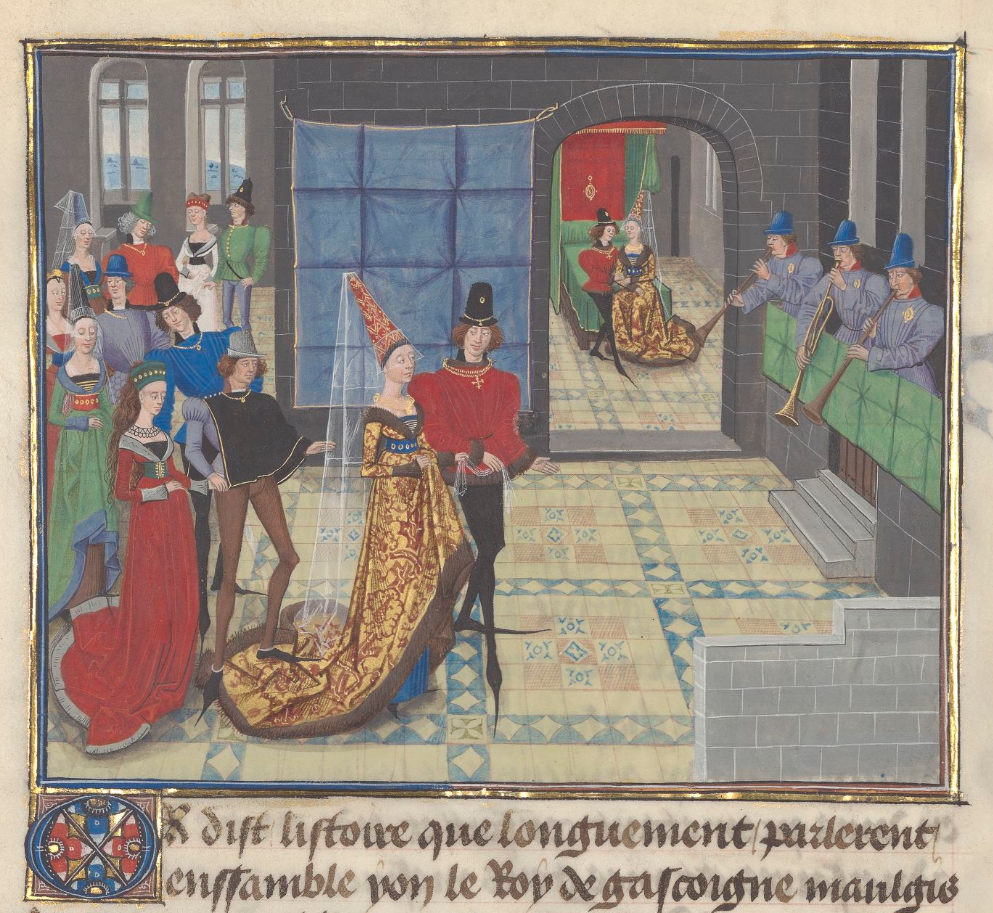 OR dist listoire que longuement parlerent
enssamble yon le Roy de gascoigne maulgis